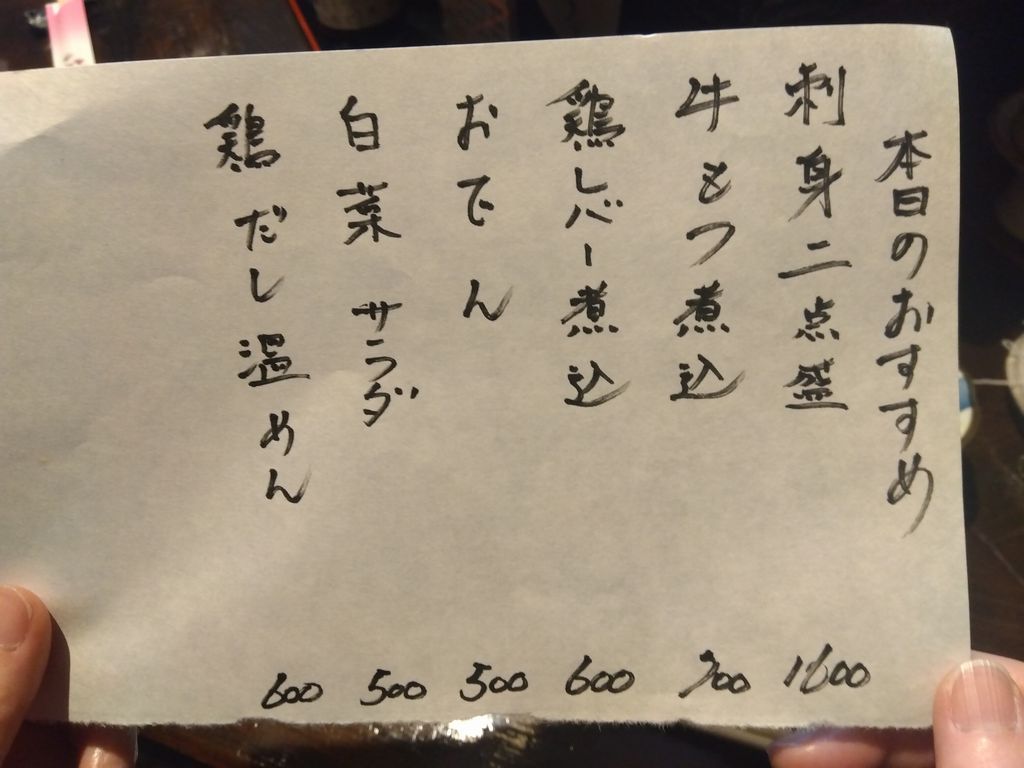 本日のおすすめ
刺身二点盛 1600
牛もつ煮込 700
鶏レバー煮込 600
おでん 500
白菜サラダ 500
鶏だし温めん 600